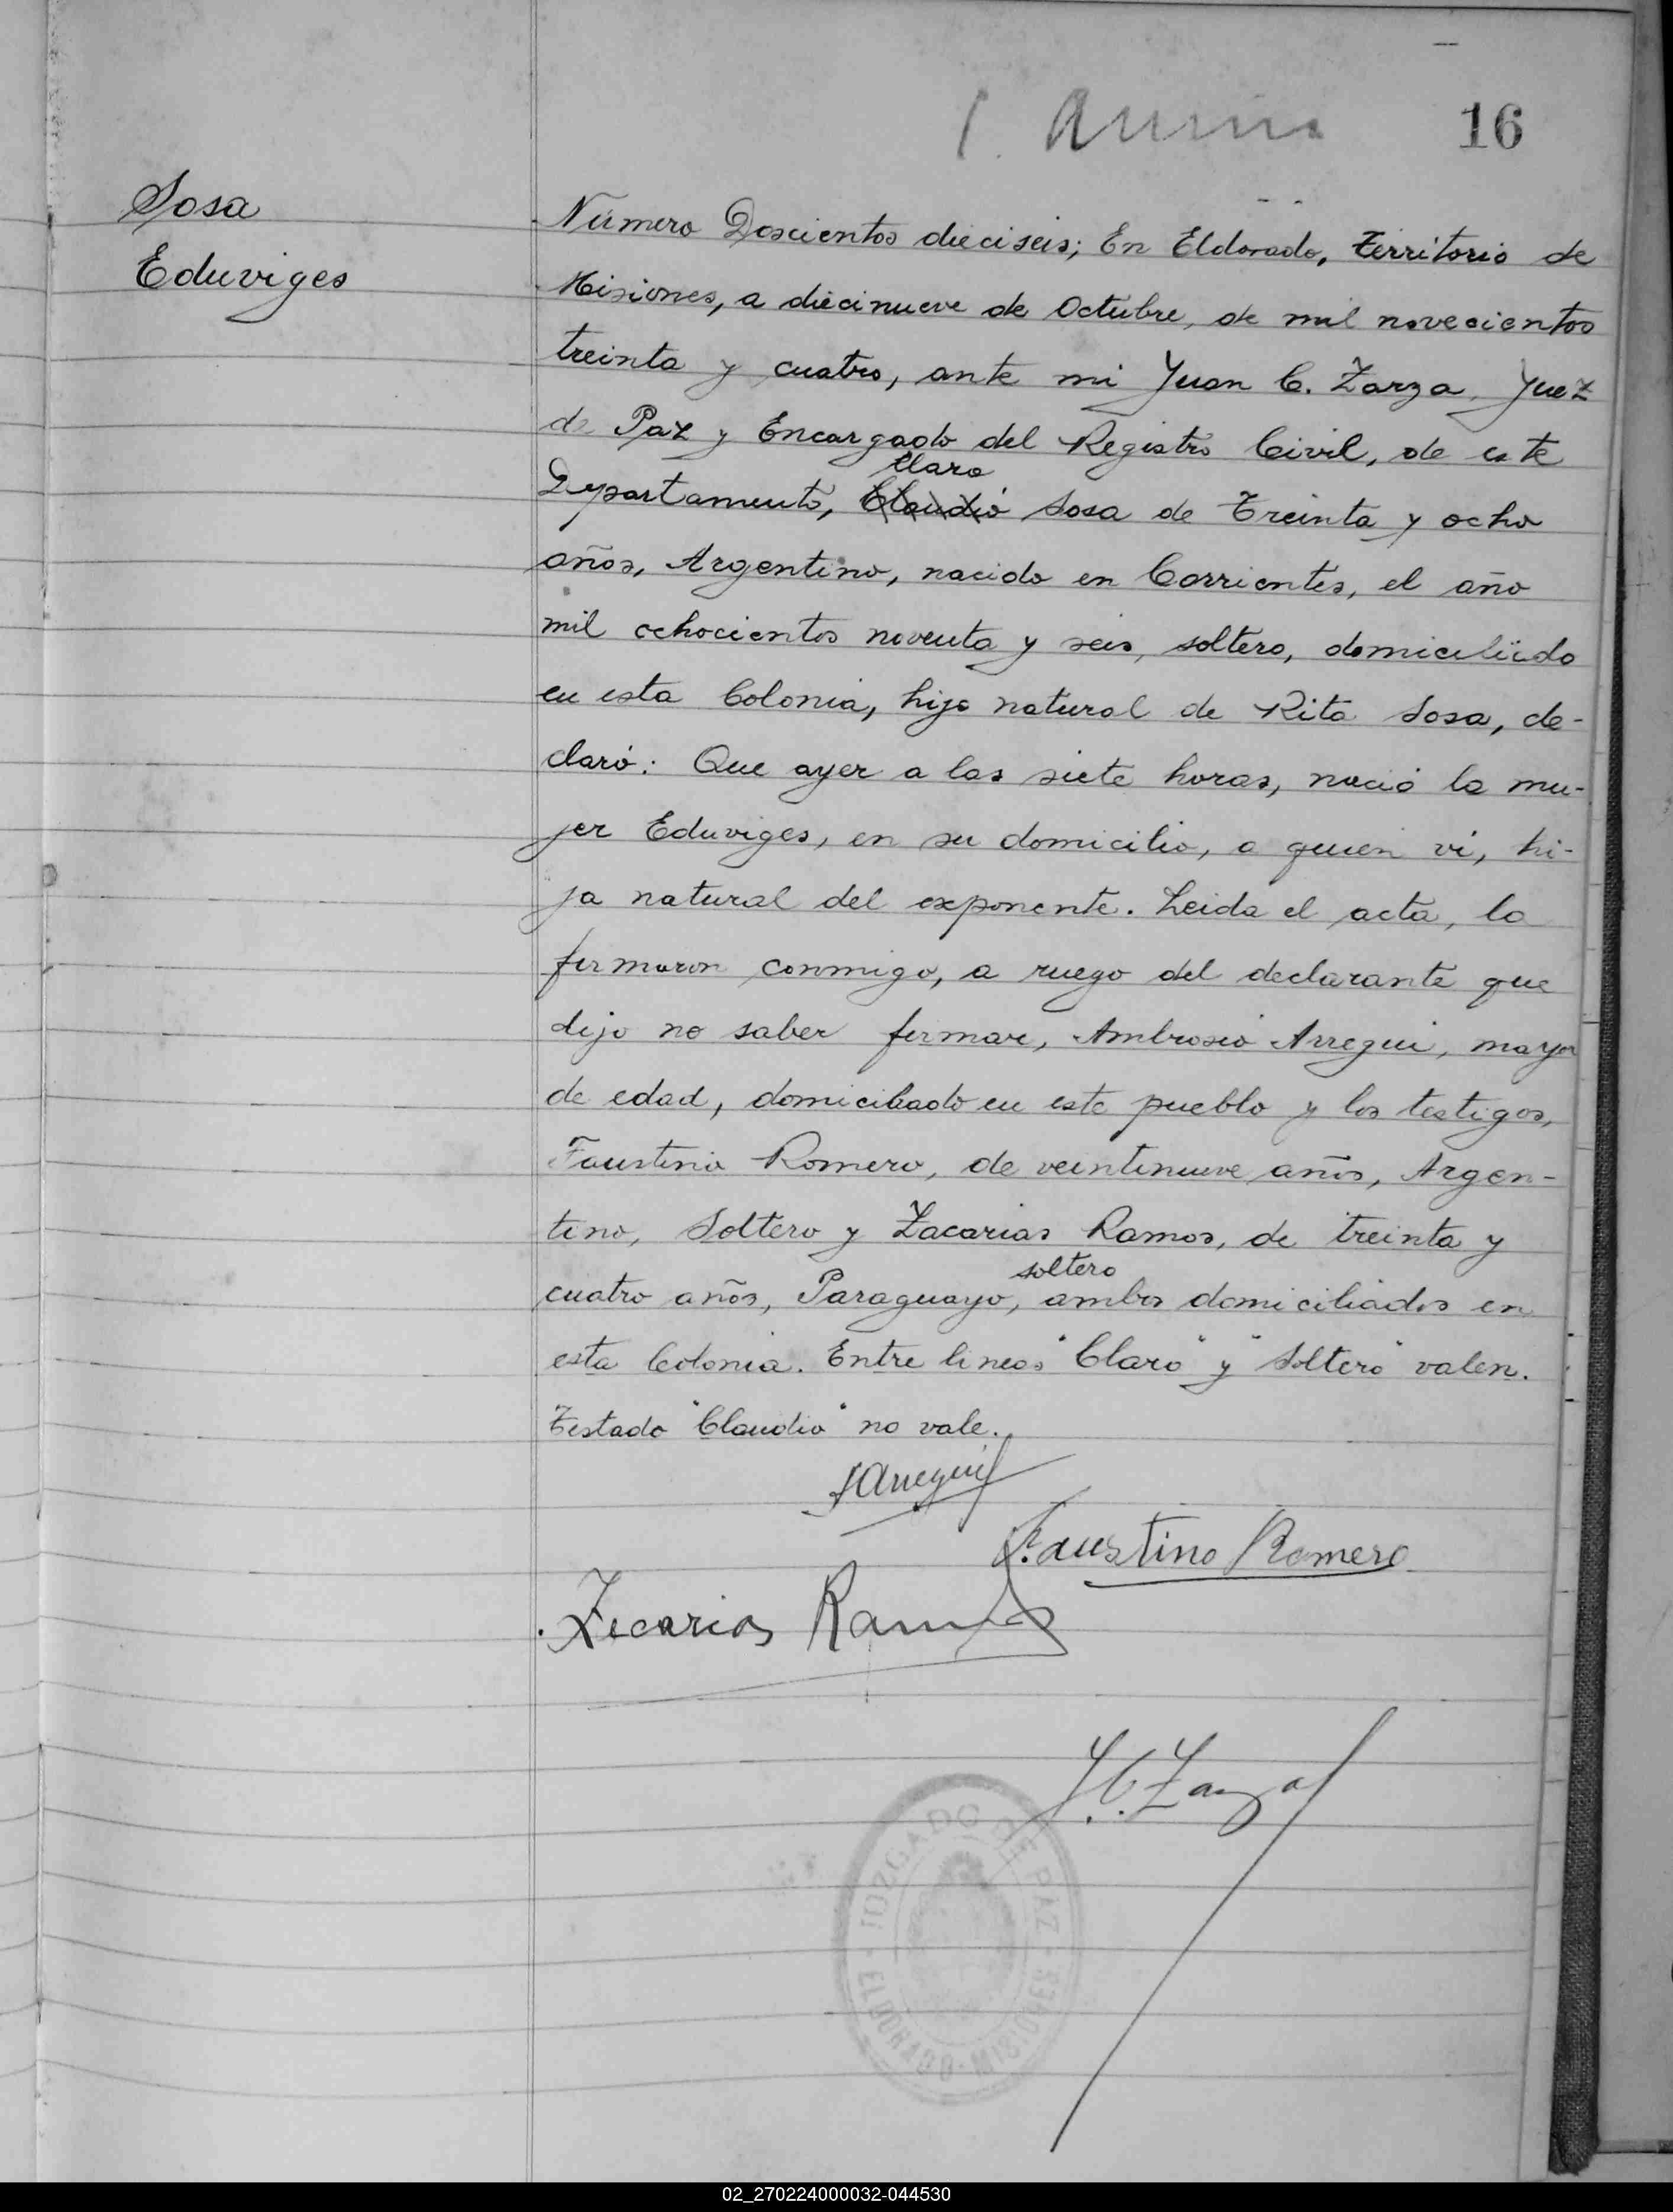 16
Sosa
Eduviges
Número Doscientos dieciseis; En Eldorado, Territorio de
Misiones, a diecinueve de Octubre, de mil novecientos
treinta y cuatro, ante mi Juan C. Zarza, Juez
de Paz y Encargado del Registro Civil, de este
Claro
Departamento, Claudio Sosa de Treinta y ocho
años, Argentino, nacido en Corrientes, el año
mil ochocientos noventa y seis, soltero, domiciliado
en esta Colonia, hijo natural de Rita Sosa, de-
claró: Que ayer a las siete horas, nació la mu-
jer Eduviges, en su domicilio, a quien vi, hi-
ja natural del exponente. Leida el acta, la
firmaron conmigo, a ruego del declarante que
dijo no saber firmar, Ambrosio Arregui, mayor
de edad, domiciliado en este pueblo y los testigos,
Faustino Romero, de veintinueve años, Argen-
tino, Soltero y Zacarias Ramos, de treinta y
soltero
cuatro años, Paraguayo, ambos domiciliados en
esta Colonia. Entre lineas "Claro" y "Soltero" valen.
Testado "Claudio" no vale.
Arregui
Faustino Romero
Zecarias Ramos
J.C. Zarza
JUZGADO DE PAZ
ELDORADO-MISIONES
02_270224000032-044530